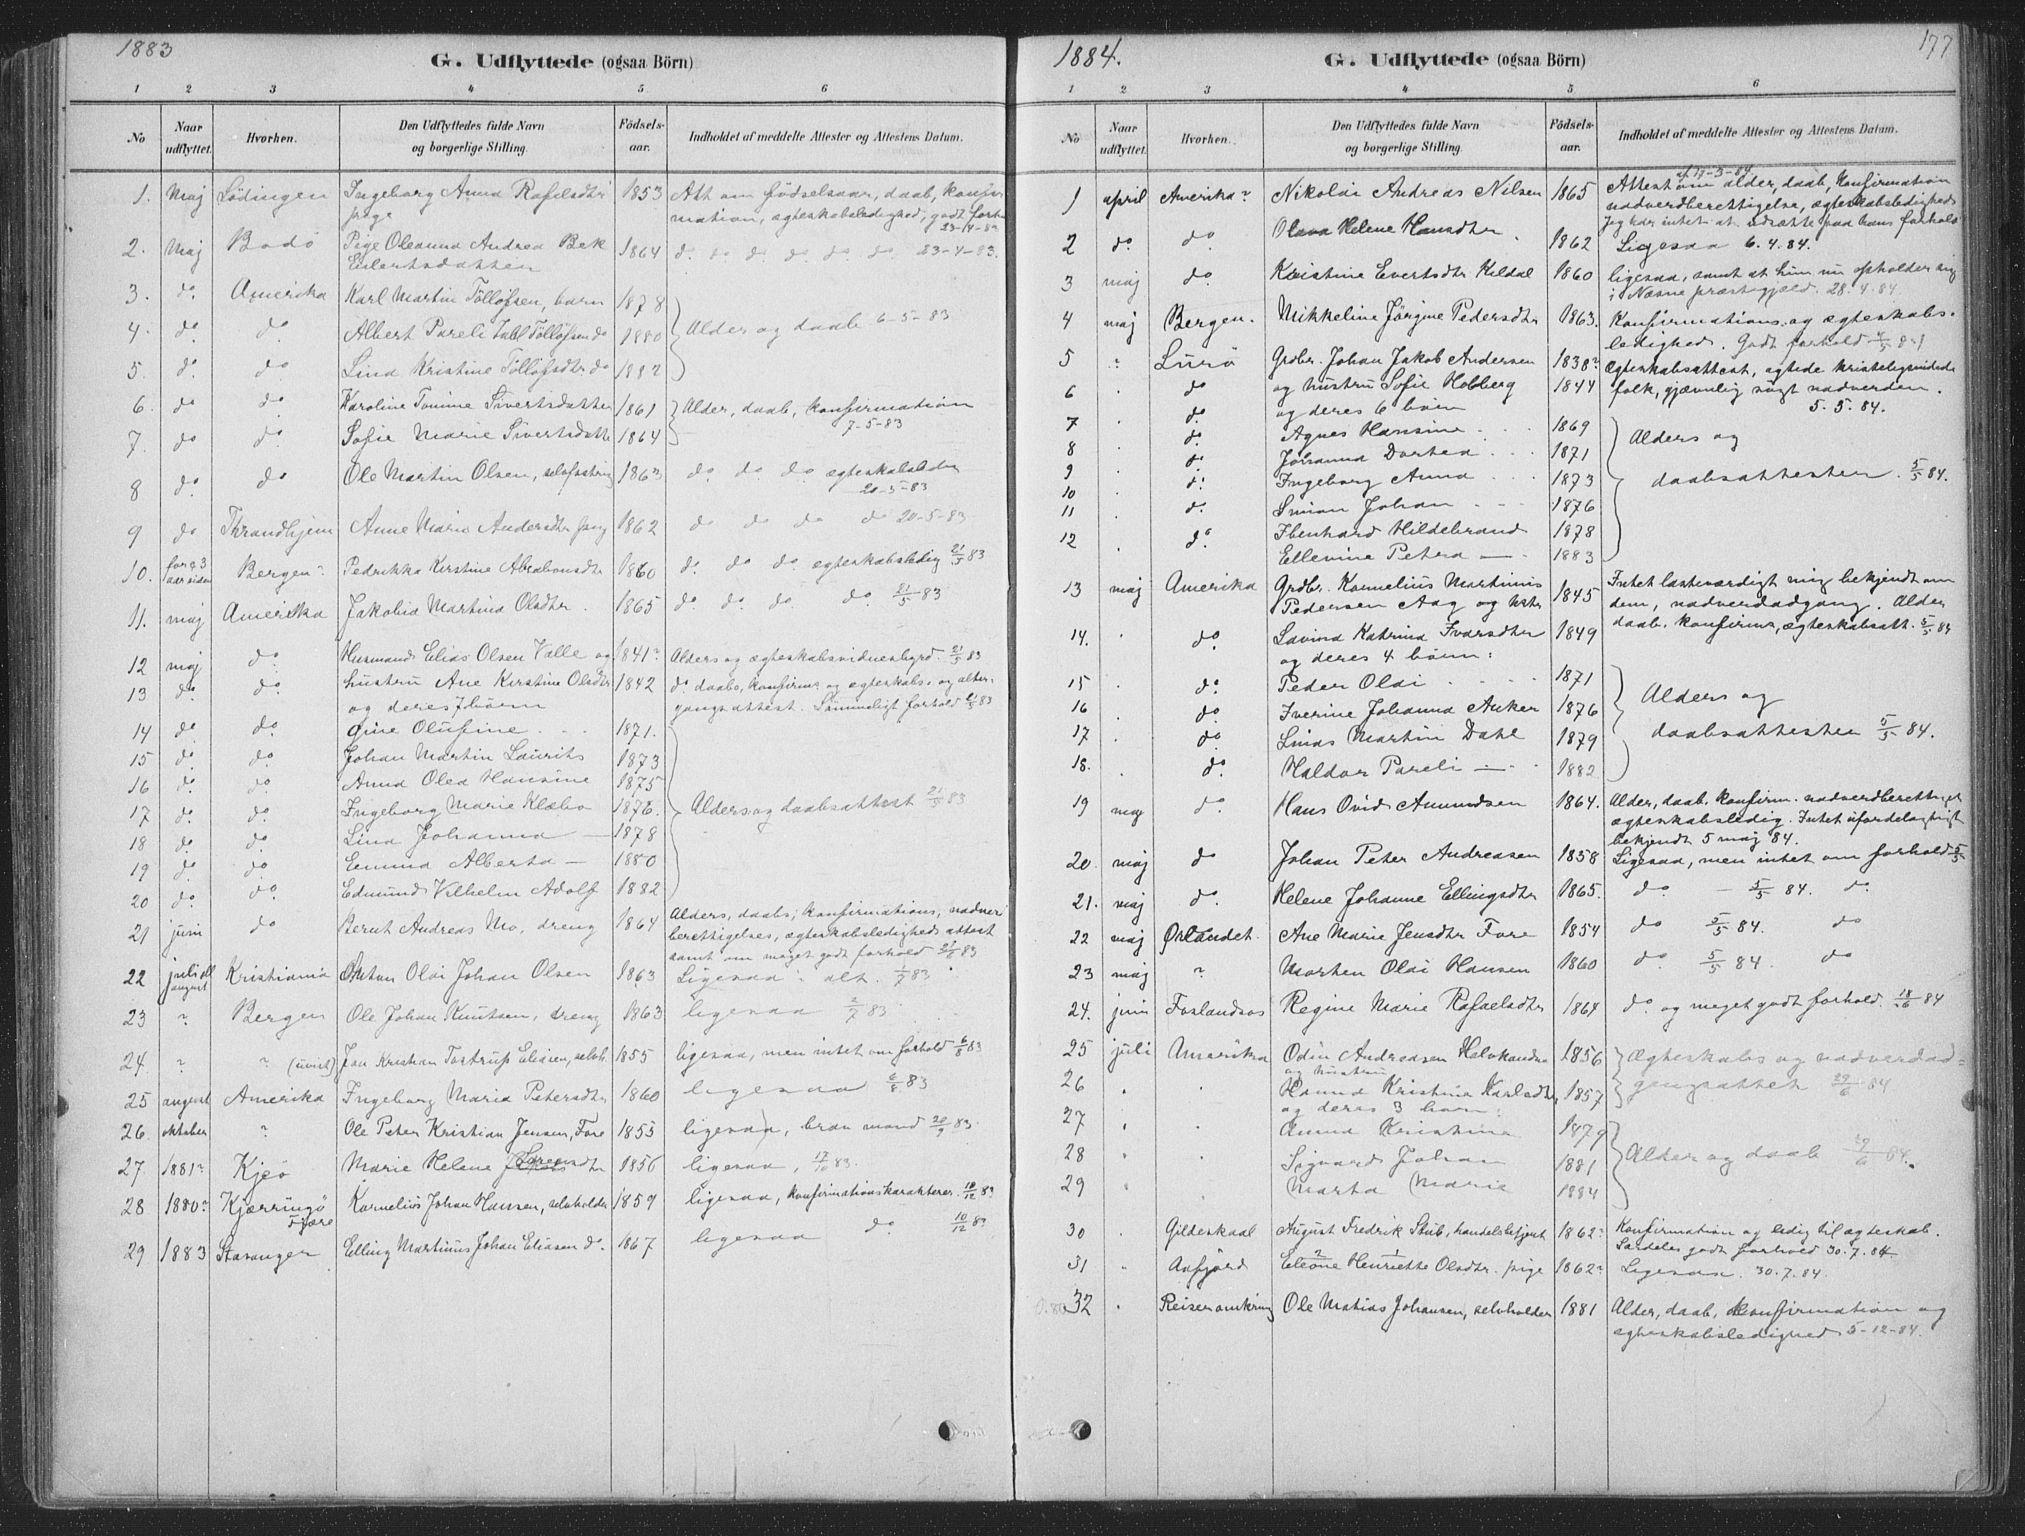 1883
G. Udflyttede (ogsaa Börn)
1 2 3 4 5 6
No
Naar udflyttet.
Hvorhen.
Den Udflyttedes fulde Navn og borgerlige Stilling.
Födsels-aar.
Indholdet af meddelte Attester og Attestens Datum.
1. Maj Lödingen Ingeborg Anna Rafelsdtr 1853 Att om födselsaar, daab, konfir
pige mation, ægteskabsledighed, godt forho
23-4-83
2. Maj Bodö Pige Oleanna Andrea Bek 1864 do. do do. do do do 23-4-83.
Eilertsdatter
3. do. Amerika Karl Martin Töllöfsen, barn 1878
4. do. do Albert Pareli Töllöfsen do 1880 Alder og daab 6-5-83
5. do. do. Lina Kristine Töllöfsdtr do 1882
6. do do. Karoline Tomine Sivertsdatter 1861 Alder, daab, konfirmation
7. do do. Sofie Marie Sivertsdatte 1864 7-5-83
8 do. do Ole Martin Olsen, 1863 do. do. do ægteskabsledig
20-5-83
9 do Thrandhjem Anne Marie Andersdtr pige 1862 do do do do 20-5-83
10. for c. 3 aar siden Bergen Pedrikka Kirstine Abrahamsdtr 1860 do. do do. ægteskabsledig 21/5 83
11. maj Amerika Jakobia Martina Olsdtr. 1865 do. do. do do. 21/5 83
12 maj do. Husmand Elias Olsen Valle og 1841? Alders og ægteskabsvidnesbyrd. 21/5 83
13 do. do. hustru Ane Kirstine Olsdtr 1842 do. daabs, konfirms og ægteskabs- og alter-
og deres 7 börn gangsattest. Sömmeligt forhold 21/5 83
14 do. do. Oline Olufine 1871.
15 do. do. Johan Martin Laurits 1873
16 do do. Anna Olea Hansine 1875
17 do. do. Ingeborg Marie Klæbo 1876. Alders og daabsattest 21/5 83
18 do. do. Lina Johanna 1878
19 do do. Emma Alberta 1880
20 do. do. Edmund Vilhelm Adolf 1882
21 juni do Bernt Andreas Mo, dreng 1864 Alders, daabs, konfirmations, nadver
berettigelses, ægteskabsledigheds attest
samt om meget godt forhold 83
22 juli august Kristiania Anton Olai Johan Olsen 1863 Ligesaa alt. 1/7 83
23 " Bergen Ole Johan Knutsen, dreng 1863 ligesaa 2/7 83
24 " " (uvist) Jan Kristian Tostrup Eliasen, selvh. 1855 ligesaa, men intet om forhold 6/8 83
25 august Amerika Ingeborg Maria Petersdtr 1860 ligesaa 83
26 oktober " Ole Peter Kristian Jensen, Fore 1855 ligesaa, bra mand 20/9 83.
27 1881? Kjeö Marie Helene Sörensdtr 1856 ligesaa, 17/10 83.
28 1880? Kjærringö Kornelius Johan Hansen, selvholder 1859 ligesaa, konfirmationskarakterer. 10/12 83
29 1883 Stavanger Elling Martinus Johan Eliasen do. 1867 ligesaa do. 10/12 83
1884.
177
G. Udflyttede (ogsaa Börn)
1 2 3 4 5 6
No
Naar udflyttet.
Hvorhen.
Den Udflyttedes fulde Navn og borgerlige Stilling.
Födsels-aar.
Indholdet af meddelte Attester og Attestens Datum.
1 april Amerika? Nikolai Andreas Nilsen 1865 Attest om alder, daab, konfirmation
nadverdberettigelse, ægteskabsledigheds
Jeg har intet at udsætte paa hans forhold
2 do do. Olava Helene Hansdtr. 1862 Ligesaa 6.4.84.
3 maj do. Kristine Evertsdtr Kildal 1860 ligesaa, samt at hun nu opholder sig
i Næsne præstegjæld. 28.4.84.
4 maj Bergen. Mikkeline Jørgine Pedersdtr 1863. Konfirmations- og ægteskabs-
ledighed. Godt forhold
5 " Lurö Grdbr. Johan Jakob Andersen 1838? Ægteskabsattest, agtede kristeligsindede
6 do og hustru Sofie Hobberg 1844 folk, gjævnlig søgt nadverden.
do. og deres 6 börn 5.5.84.
7 do. Agnes Hansine 1869
8 do Johanna Dortea 1871 Alders og
9 do. Ingeborg Anna 1873 daabsattester. 5/5 84.
10 do. Simon Johan 1876
11 Ebenhard Hildebrand 1878
12 do. Ellevine Petra 1883
13 maj Amerika Grdbr. Kornelius Martinus 1845 Intet lasteværdigt mig bekjendt om
Pedersen Aag og hustr dem, nadverdadgang. Alder
14. " do. Lavina Katrina Ivarsdtr 1849 daab. konfirms, ægteskabsatt. 5/5 84
og deres 4 börn:
15 " do. Peder Olai 1871
16 do. Iverine Johanna Anker 1876 Alders og
17 " do. Linas Martin Dahl 1879 daabsattester 5/5 84.
18. do. Haldor Pareli 1882
19 maj do. Hans Ovid Amundsen 1864. Alder, daab, konfirm. nadverdberettiget
ægteskabsledig. Intet ufordelagtigt
bekjendt 5 maj 84.
20. maj do Johan Peter Andreasen 1858 Ligesaa, men intet om forhold 5/5
21. maj do. Helene Johanne Ellingsdtr 1865. do 5/5 84. do.
22 maj Ørlandet. Ane Marie Jensdtr Fore 1854 do 5/5 84. do
23 maj " Morten Olai Hansen 1860 do. 5/5 84. do
24. juni Foslandsos Regine Marie Rafaelsdtr 1864 do. og meget godt forhold. 18/6 84
25 juli Amerika Odin Andreasen 1856 Ægteskabs og nadverdad-
og hustru
26 " Hanna Kristina Karlsdtr, 1857 gangsattest 29/6 84
og deres 3 barn:
27 " Anna Kristina 1879
28 " Sigvard Johan 1881 Alder og daab 29/6 84.
29 " Marta Marie 1884
30 " Gildeskaal August Fredrik Stub, handelsbetjent 1862? Konfirmation og ledig til ægteskab.
Særdeles godt forhold 30.7.84.
31 " Aafjord Eleone Henriette Olsdtr. pige 1862? Ligesaa. 30.7.84.
32 " Reiser omkring Ole Matias Johansen, selvholder 1881 Alder, daab, konfirmation og
ægteskabsledighed 5-12-84.